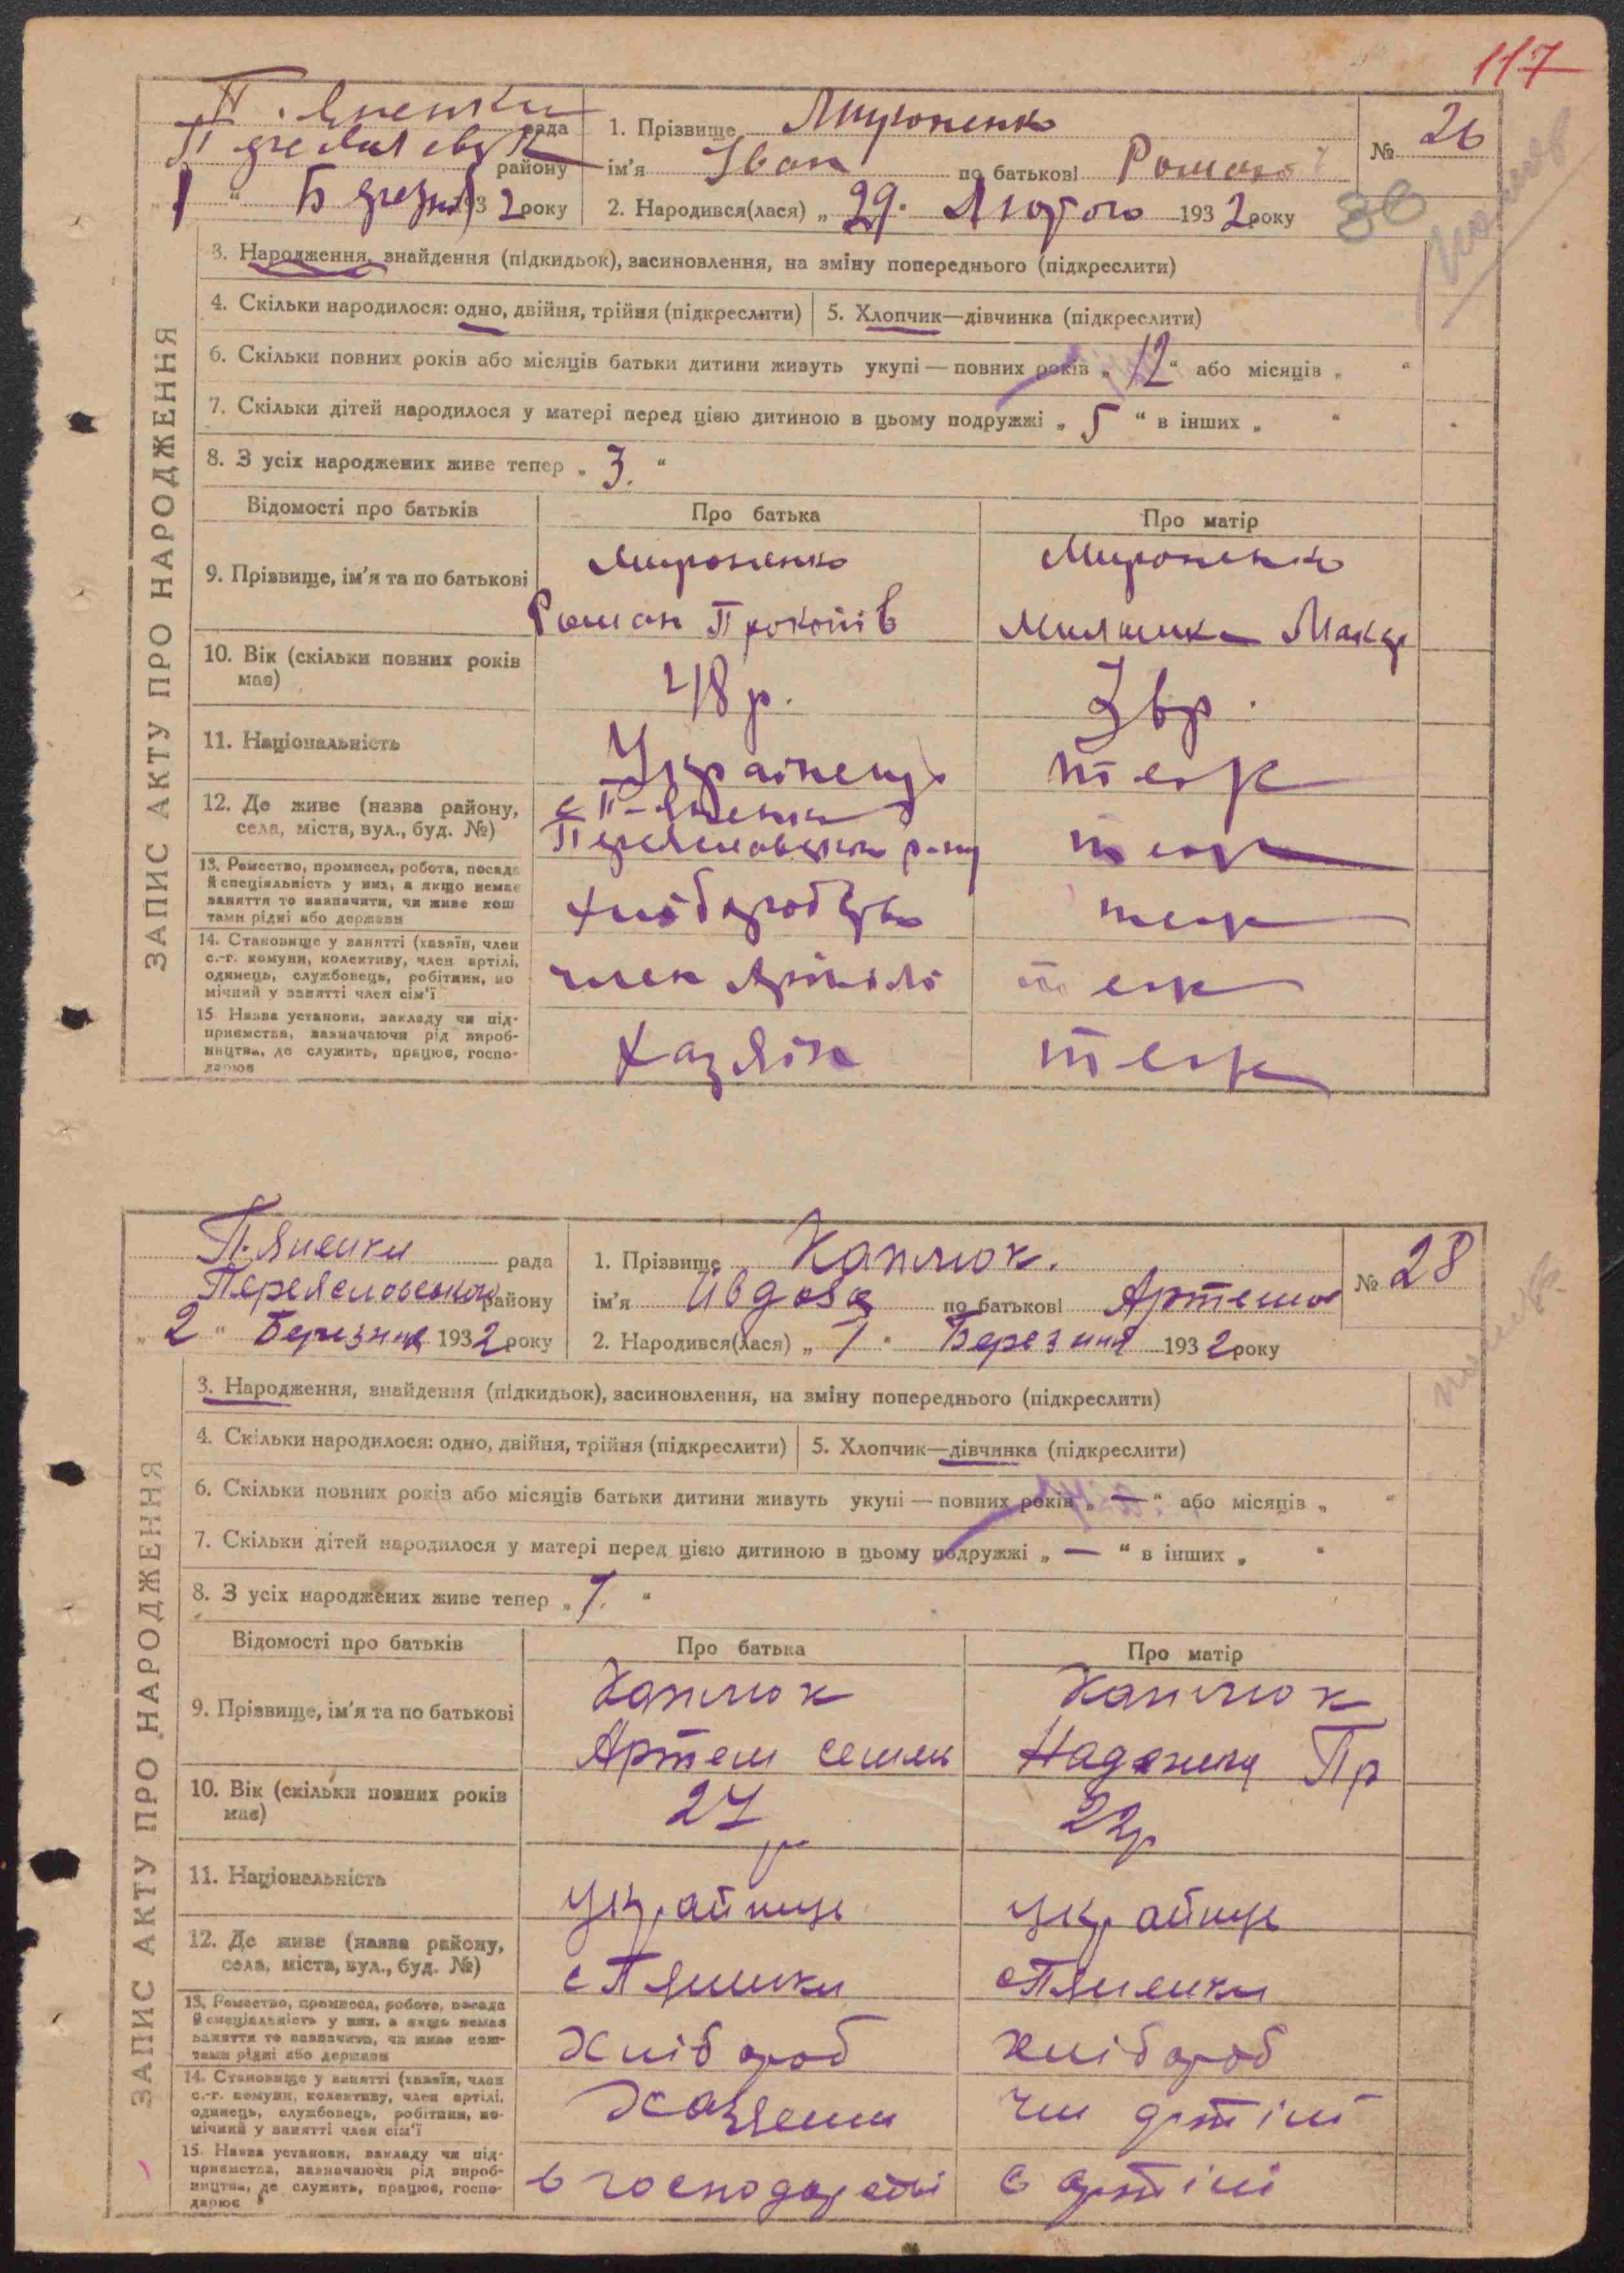 117
П. Яненки рада
Переяславськ району
1 " Березня 1932 року
1. Прізвище Мироненко
ім'я Іван по батькові Роман
№ 26
2. Народився(лася) „ 29. Лютого 1932 року
30
3. Народження, знайдення (підкидьок), засиновлення, на зміну попереднього (підкреслити)
4. Скільки народилося: одно, двійня, трійня (підкреслити) 5. Хлопчик—дівчинка (підкреслити)
6. Скільки повних років або місяців батьки дитини живуть укупі — повних років „ 12 “ або місяців „ “
7. Скільки дітей народилося у матері перед цією дитиною в цьому подружжі „ 5 “ в інших „ “
8. З усіх народжених живе тепер „ 3. “
Відомості про батьків Про батька Про матір
9. Прізвище, ім'я та по батькові
Мироненко
Роман Прокопів
Мироненко
10. Вік (скільки повних років має)
48 р.
11. Національність
Українець
теж
12. Де живе (назва району, села, міста, вул., буд. №)
с П-Яненки
Переяславського р-ну
теж
13. Ремество, промисел, робота, посада
й спеціяльність у них, а якщо немає
заняття то зазначити, чи живе кош
тами рідні або держави
Хлібороб
теж
14. Становище у занятті (хазяїн, член
с.-г. комуни, колективу, член артілі,
одинець, службовець, робітник, по
мічний у занятті член сім'ї
член Артілі
теж
15. Назва установи, закладу чи під-
приємства, зазначаючи рід вироб-
ництва, де служить, працює, госпо-
дарює
Хазяїн
теж
ЗАПИС АКТУ ПРО НАРОДЖЕННЯ
П. Яненки рада
Переяславського району
„ 2 “ Березня 1932 року
1. Прізвище Каплюк.
ім'я Івдоя по батькові Артемов
№ 28
2. Народився(лася) „ 1 " Березня 1932 року
3. Народження, знайдення (підкидьок), засиновлення, на зміну попереднього (підкреслити)
4. Скільки народилося: одно, двійня, трійня (підкреслити) 5. Хлопчик—дівчинка (підкреслити)
6. Скільки повних років або місяців батьки дитини живуть укупі — повних років „ — “ або місяців „ “
7. Скільки дітей народилося у матері перед цією дитиною в цьому подружжі „ — “ в інших „ “
8. З усіх народжених живе тепер „ 1. “
Відомості про батьків Про батька Про матір
9. Прізвище, ім'я та по батькові
Каплюк
Артем Семен
Каплюк
Пр
10. Вік (скільки повних років має)
27 р
22 р
11. Національність
Українць
Українць
12. Де живе (назва району, села, міста, вул., буд. №)
с П Яненки
с П Яненки
13. Ремество, промисел, робота, посада
й спеціяльність у них, а якщо немає
заняття то зазначити, чи живе кош-
тами рідні або держави
Хлібороб
Хлібороб
14. Становище у занятті (хазяїн, член
с.-г. комуни, колективу, член артілі,
одинець, службовець, робітник, по-
мічний у занятті член сім'ї
Хазяєин
чл артілі
15. Назва установи, закладу чи під-
приємства, зазначаючи рід вироб-
ництва, де служить, працює, госпо-
дарює
в господарстві
в артілі
ЗАПИС АКТУ ПРО НАРОДЖЕННЯ